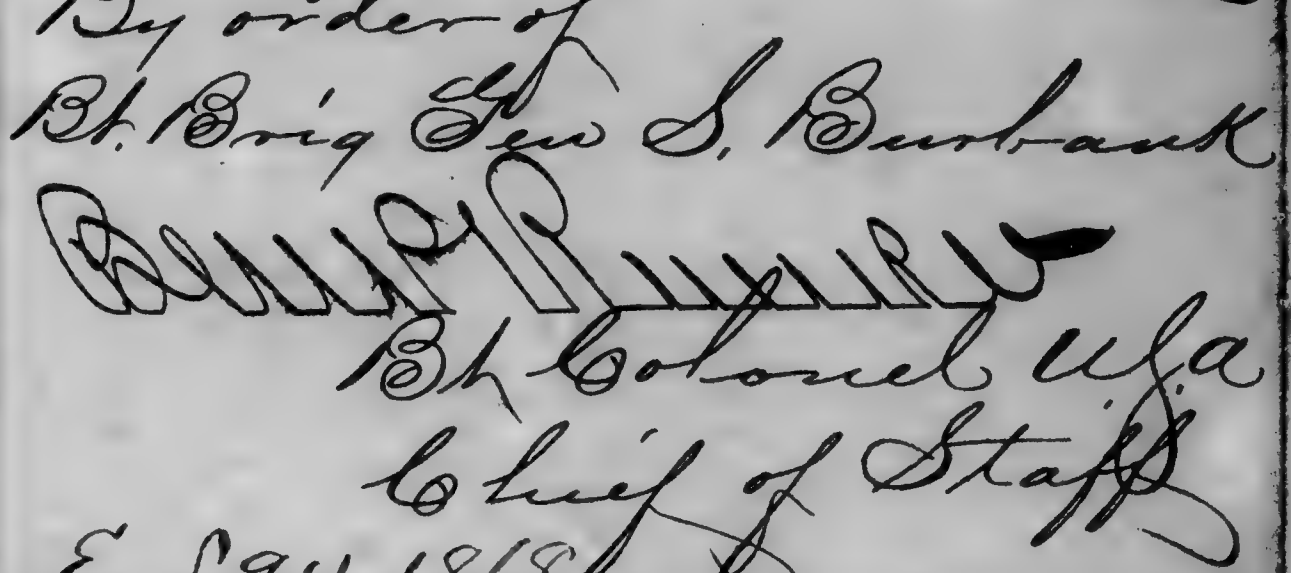 By order of
Bt. Brig Gen S. Burbank
Ben P Runkle
Bt Colonel U.S.A
Chief of Staff